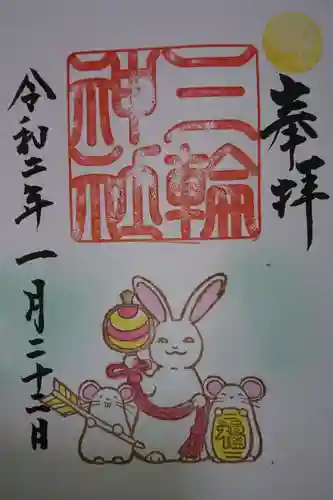 奉拝
三輪神社
令和二年 一月二十二日
福